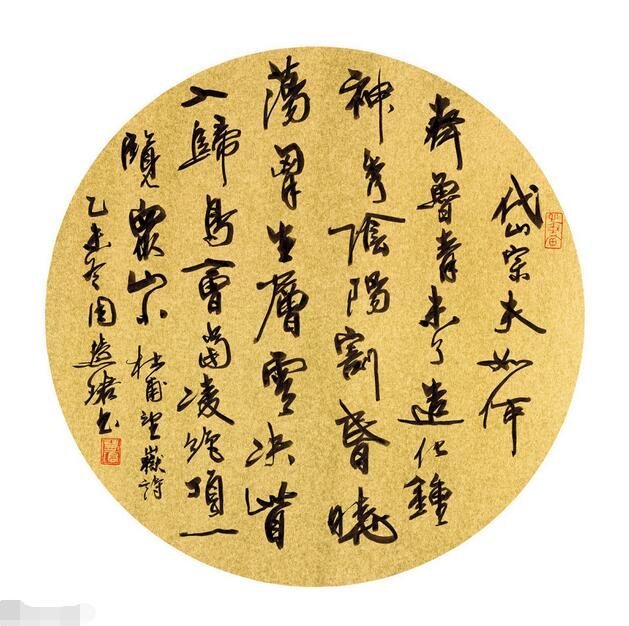 岱宗夫如何
齊魯青未了造化鍾
神秀陰陽割昏曉
蕩胸生層雲決眥
入歸鳥會當凌絕頂一
覽眾山小
杜甫望嶽詩
乙未冬周
書